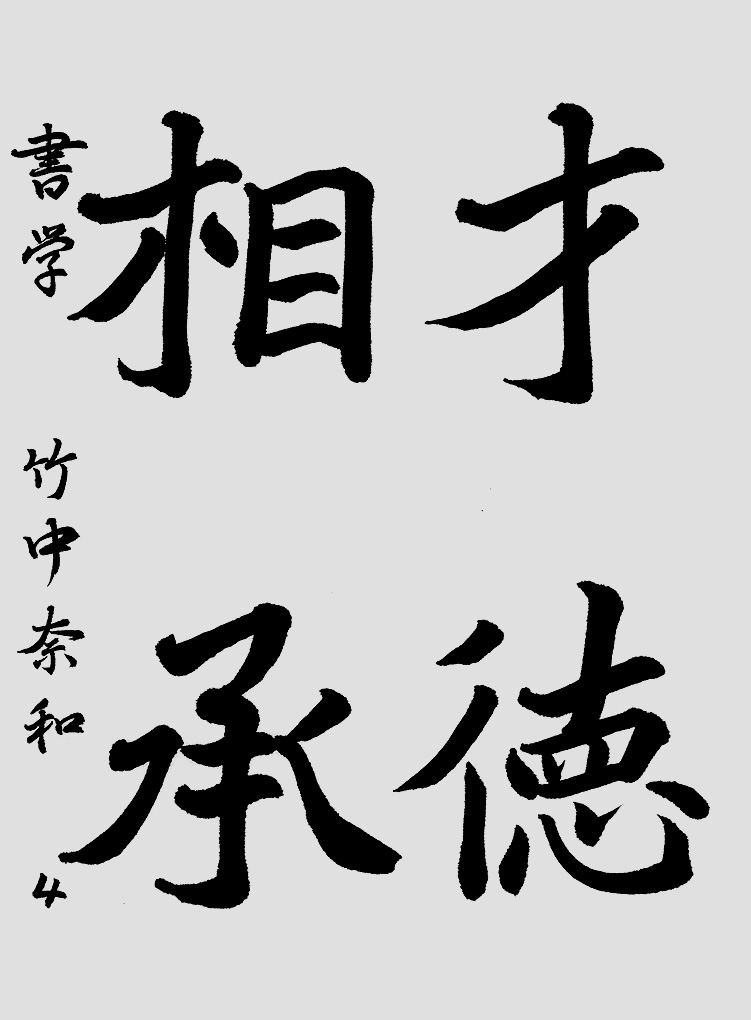 才徳
相承
書学 竹中奈和 4